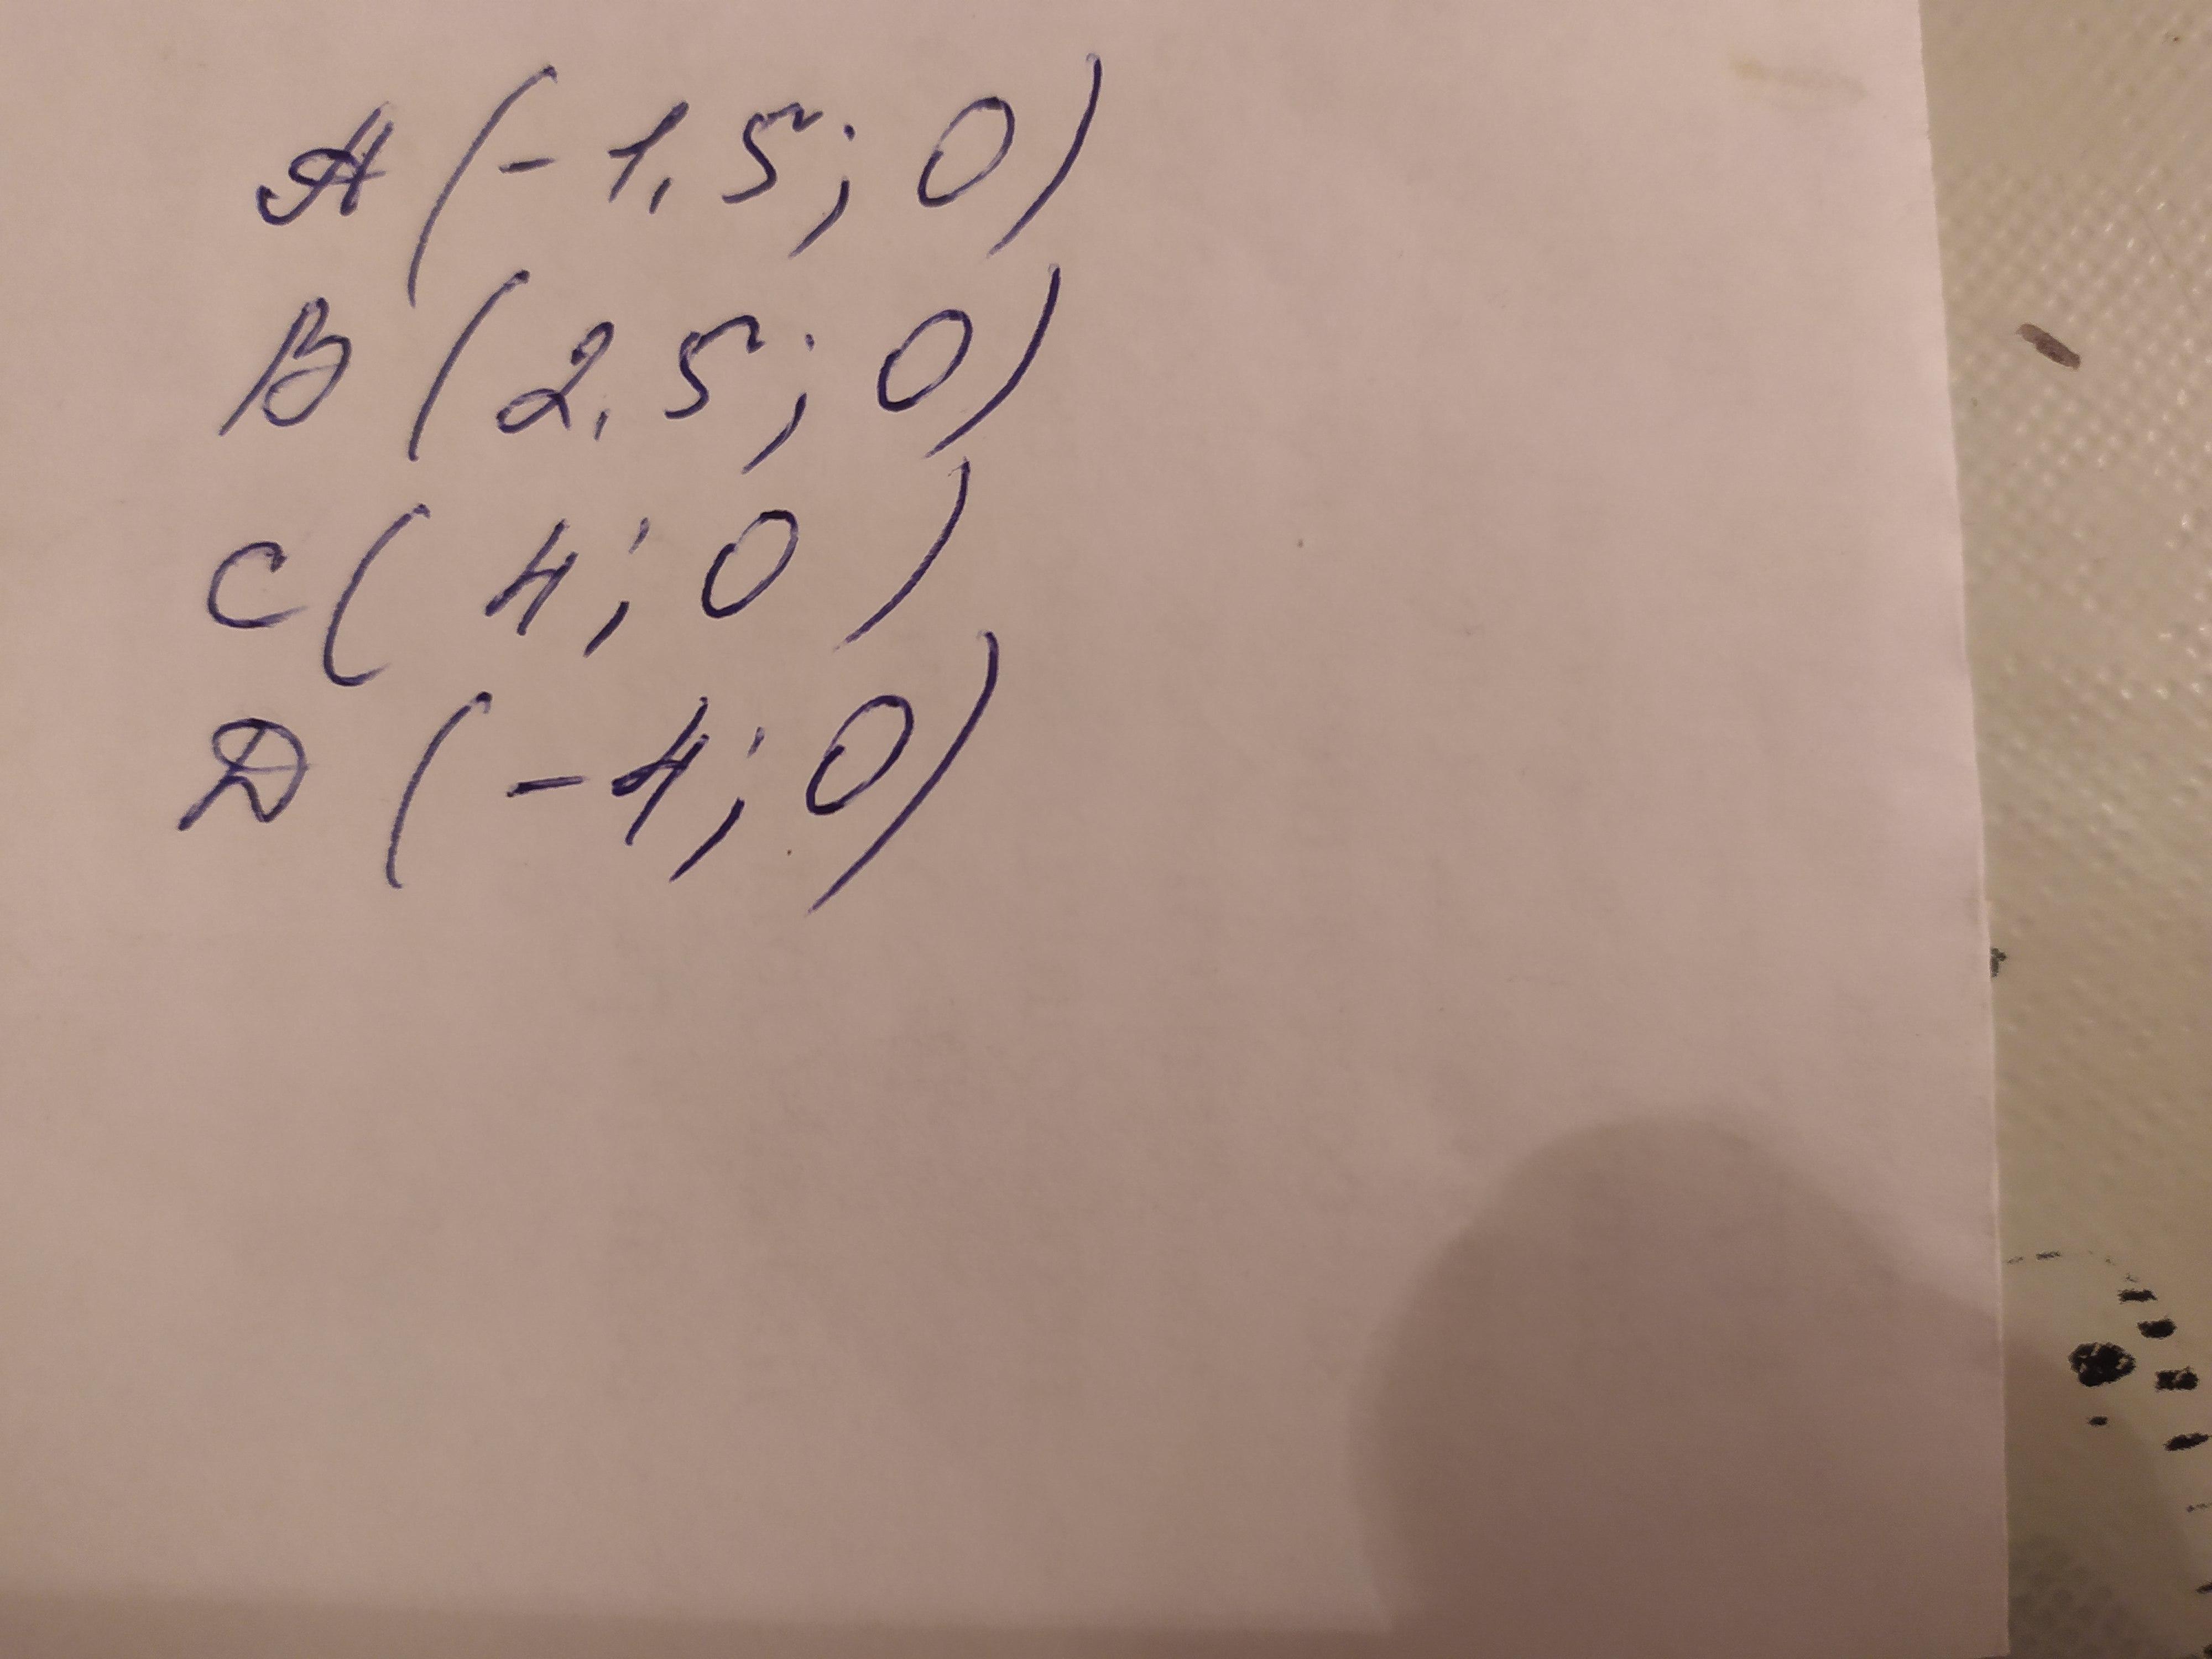 A (-1,5; 0)
B (2,5; 0)
C ( 4; 0 )
D (-4; 0)